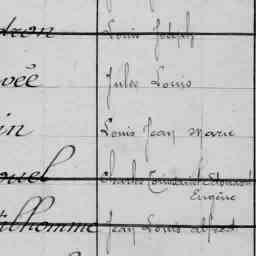 dron Louis Joseph
vée Jules Louis
in Louis Jean Marie
ouel Charles Toussaint Edouard
Eugène
tilhomme Jean Louis Alfred